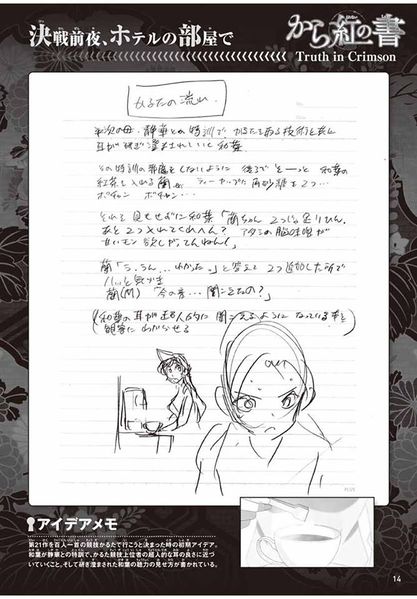 決戦前夜、ホテルの部屋で
から紅の書
Truth in Crimson
かるたの流れ
平次の母・静華との特訓で かるたを取る技術と共に
耳が研ぎ澄まされていく和葉
その特訓の邪魔をしないように 後ろでそーっと 和葉の
紅茶を入れる蘭は ティーカップに角砂糖を2つ…
ポチャン ポチャン…
それを見もせずに和葉「蘭ちゃん 2つじゃ足りひん。
あと2つ入れてくれへん? アタシの脳味噌が
甘いモン欲しがってんねん!」
蘭「う、うん…わかった。」と答えて2つ追加した所で
ハッと気づき
蘭(M)「今の音… 聞こえたの?」
(和葉の耳が超人的に聞こえるようになっている事を
観客にわからせる)
アイデアメモ
第21作を百人一首の競技かるたで行こうと決まった時の初期アイデア。
和葉が静華との特訓で、かるた競技上位者の超人的な耳の良さに近づ
いていくこと、そして研ぎ澄まされた和葉の聴力の見せ方が書かれている。
14